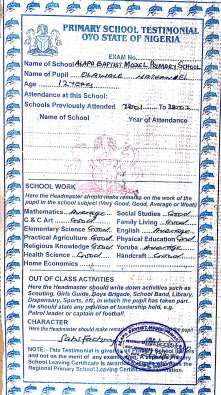 PRIMARY SCHOOL TESTIMONIAL
OYO STATE OF NIGERIA
EXAM No.
Name of School ALAFA BAPTIST MODEL PRIMARY SCHOOL
Name of Pupil OLAWALE NATHANIEL
Age 12 YEARS
Attendance at this School:
Schools Previously Attended to
Name of School Year of Attendance
SCHOOL WORK
Here the Headmaster should make remarks on the work of the
pupil in the school subject (Very Good, Good, Average or Weak)
Mathematics AVERAGE Social Studies GOOD
C & C Art GOOD Family Living GOOD
Elementary Science GOOD English AVERAGE
Practical Agriculture GOOD Physical Education GOOD
Religious Knowledge GOOD Yoruba AVERAGE
Health Science GOOD Handcraft GOOD
Home Economics
OUT OF CLASS ACTIVITIES
Here the Headmaster should write down activities such as
Scouting, Girls Guide, Boys Brigade, School Band, Library,
Dispensary, Sports, etc, in which the pupil has taken part
He should state any position of leadership held, e.g.
Patrol leader or captain of football.
CHARACTER
Here the Headmaster should make remarks the pupil
Satisfactory
NOTE: This Testimonial is given to Primary School leavers
and not on the merit of any examination. A separate Primary
School Leaving Certificate is
Regional Primary School Leaving Certificate